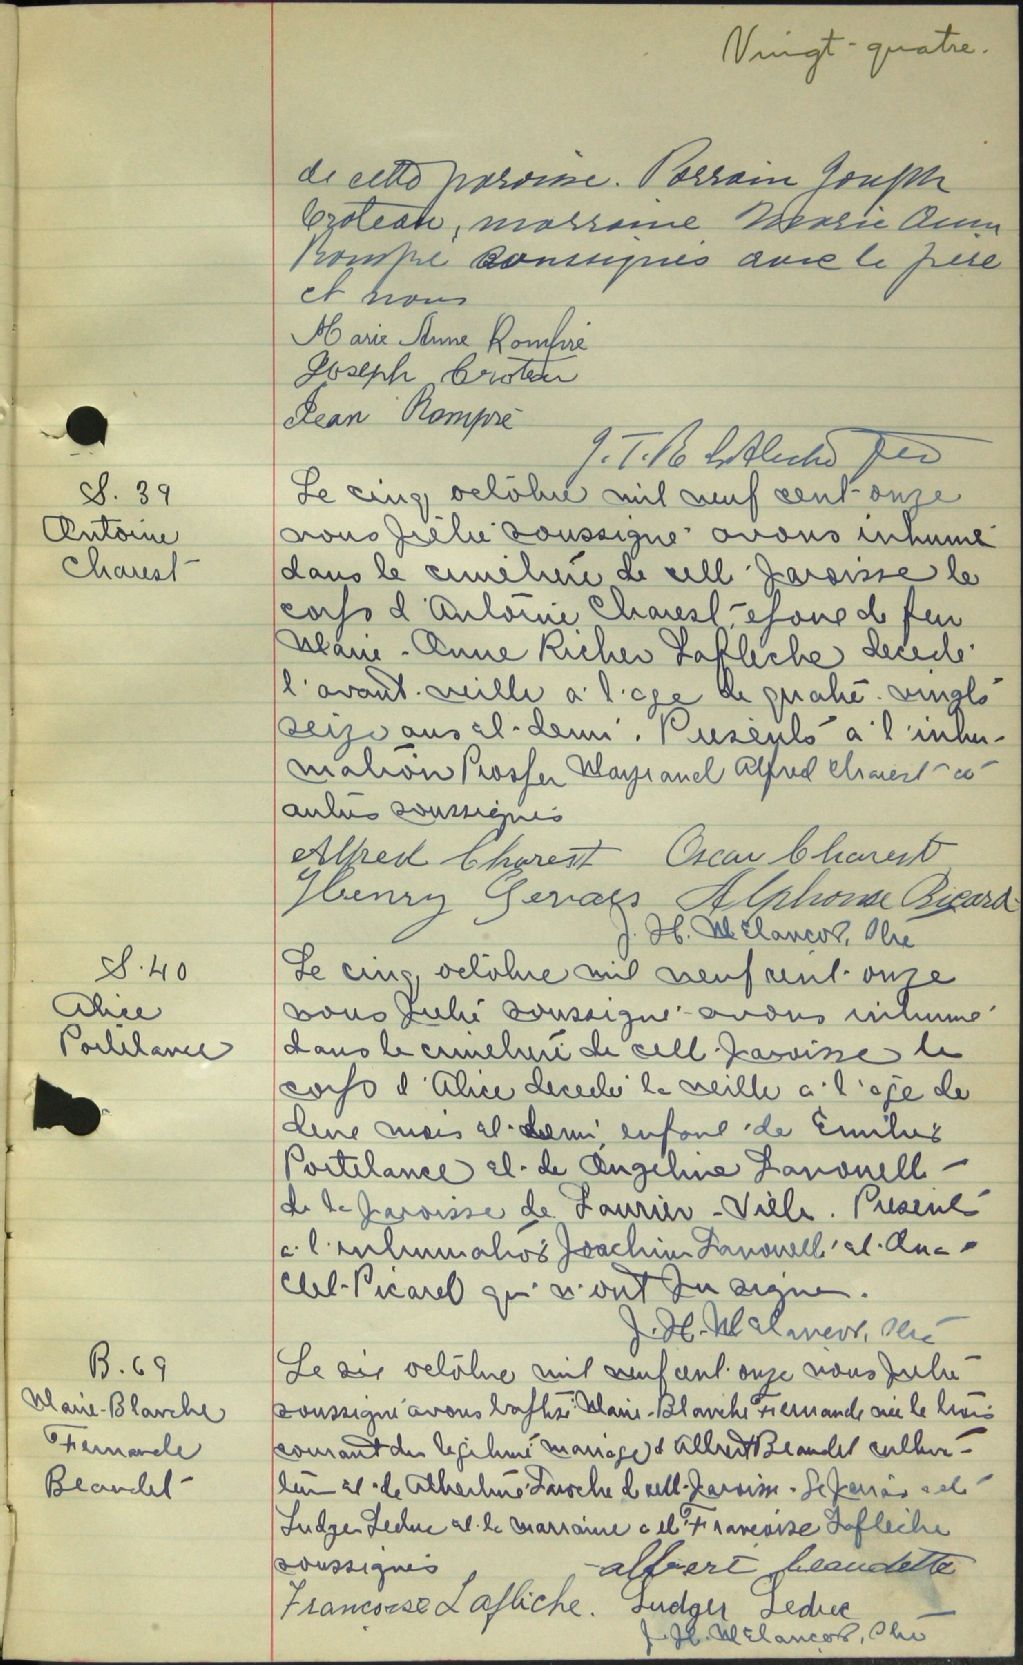 Vingt-quatre.
de cette paroisse. Parrain Joseph
Croteau, marraine Marie Anna
Rompré soussignés avec le père
et nous
Marie Anne Rompré
Joseph Croteau
Jean Rompré
J. T. R. Laflèche Ptr
S. 39
Antoine
Charest
Le cinq octobre mil neuf cent-onze
nous prêtre soussigné avons inhumé
dans le cimetière de cette paroisse le
corps d'Antoine Charest, époux de feu
Marie-Anne Richer Laflèche décédé
l'avant-veille à l'age de quatre-vingts
seize ans et demi. Présents à l'inhu-
mation Prosper Mayrand Alfred Charest et
autres soussignés
Alfred Charest Oscar Charest
Henry Gervais Alphonse Ricard
J. H. Melançon, Ptre
S. 40
Alice
Portelance
Le cinq octobre mil neuf cent-onze
nous prêtre soussigné avons inhumé
dans le cimetière de cette paroisse le
corps d'Alice décédé la veille à l'age de
deux mois et demi enfant de Emile
Portelance et de Angeline
de la paroisse de Laurier-Ville. Présents
à l'inhumation Joachim et Ana-
clet Picard qui n'ont pu signer.
J. H. Melançon, Ptre
B. 69
Marie-Blanche
Fernande
Beaudet
Le six octobre mil neuf cent onze nous prêtre
soussigné avons baptisé Marie-Blanche Fernande née le trois
courant du légitime mariage d'Albert Beaudet cultiva-
teur et de Laroche de cette paroisse. Le parrain a été
Ludger Leduc et la marraine a été Françoise Laflèche
soussignés albert beaudette
Françoise Laflèche. Ludger Leduc
J. H. Melançon, Ptre